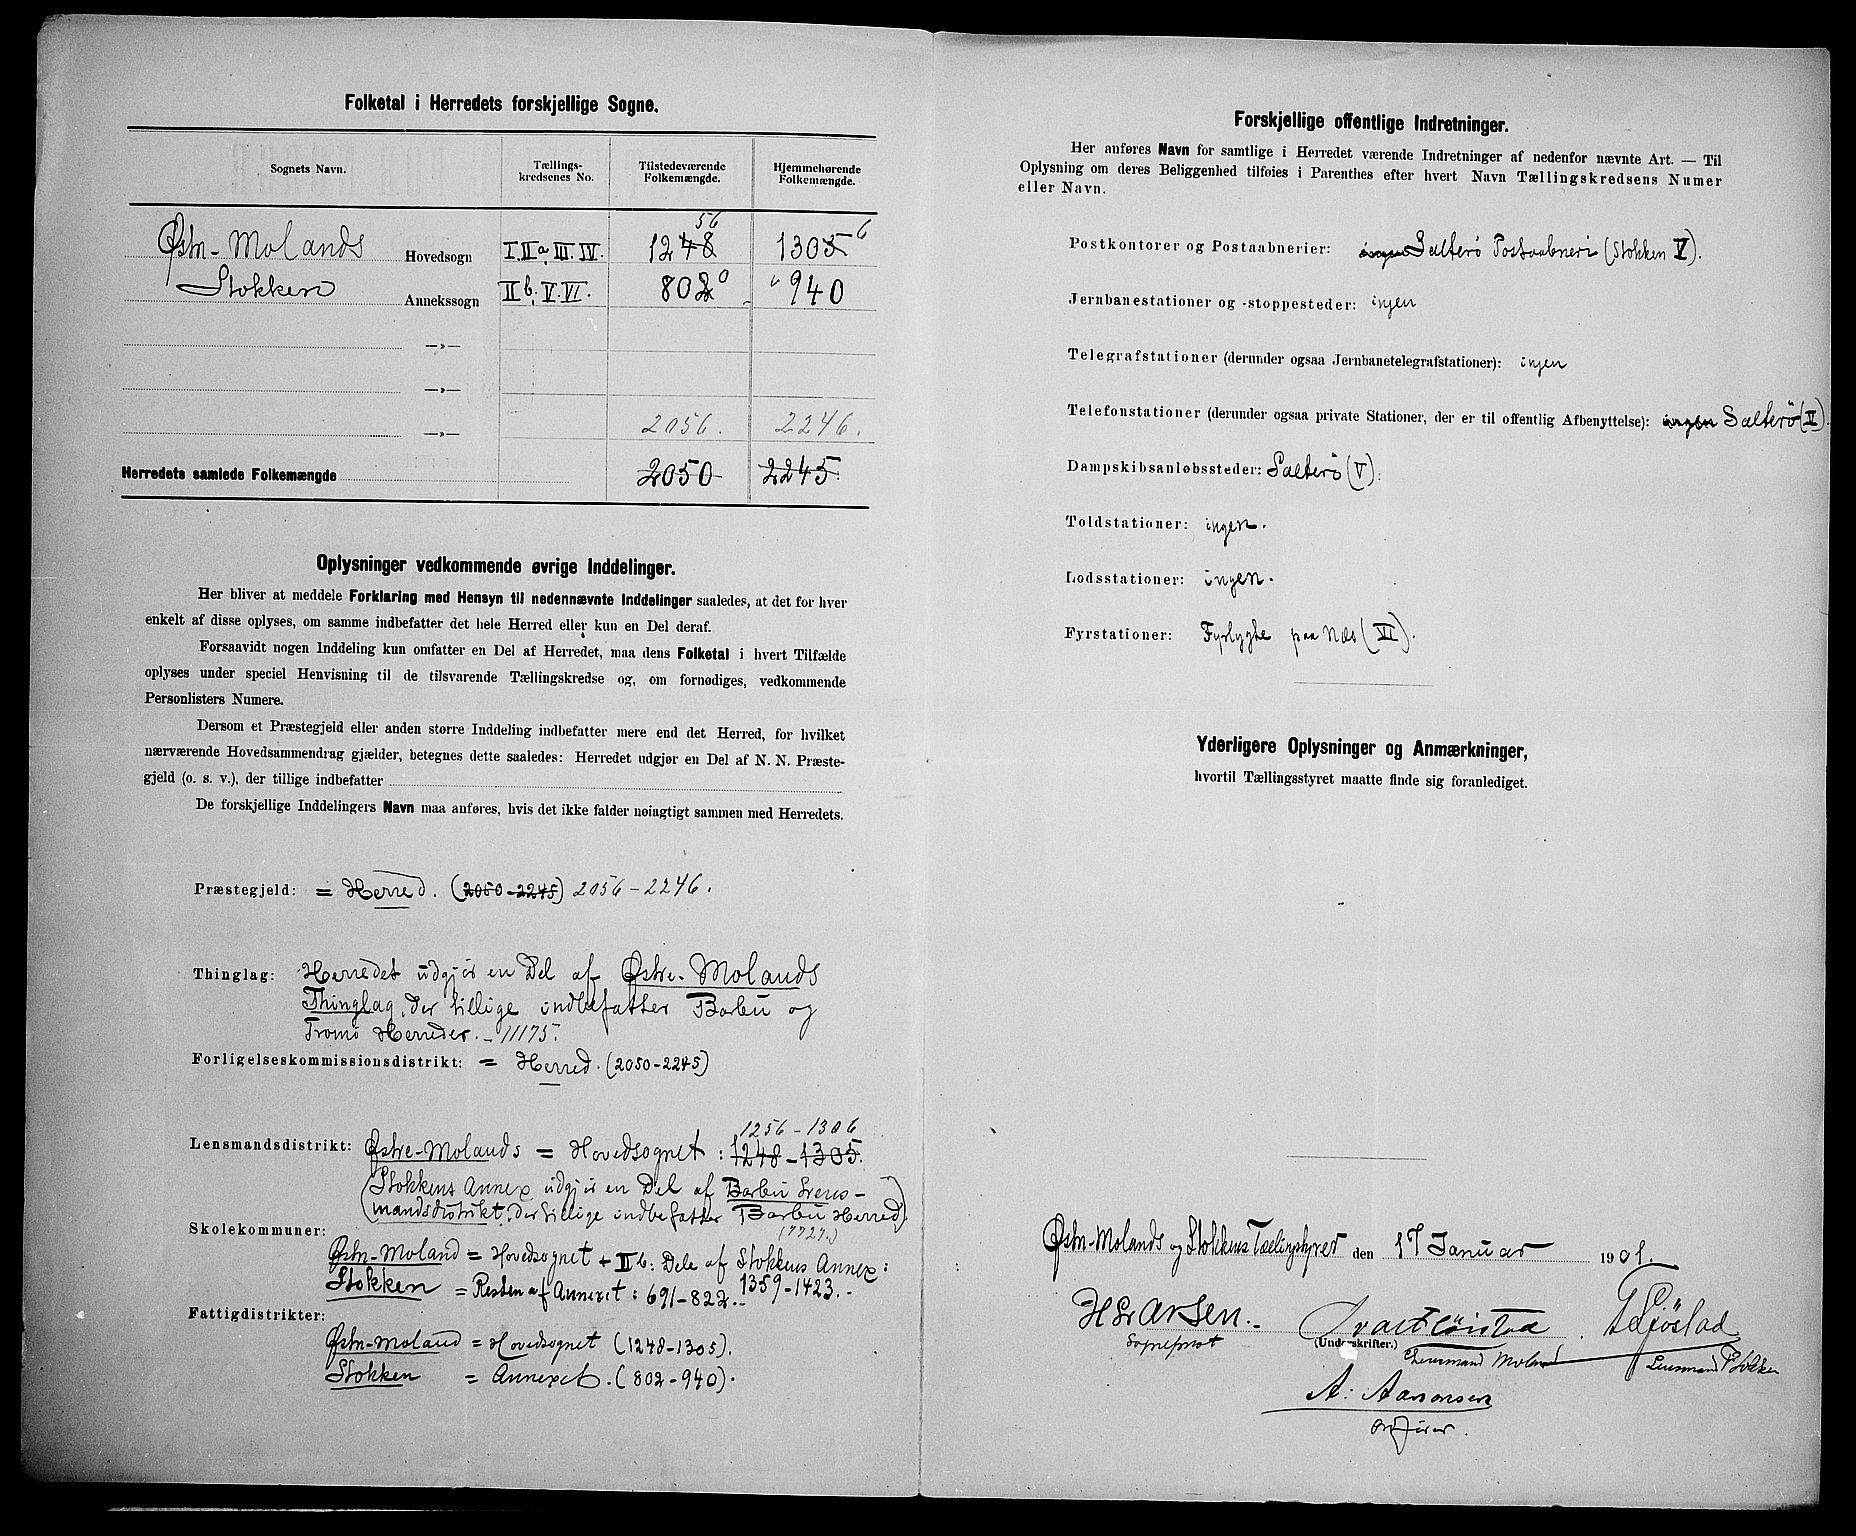 Folketal i Herredets forskjellige Sogne.
Sognets Navn.
Tællings-
kredsenes No.
Tilstedeværende
Folkemængde.
Hjemmehørende
Folkemængde.
Østr-Molands Hovedsogn I.IIa.III.IV. 1248 56 1305 6
Stokken Annekssogn IIb.V.VI. 802 0 940
—»—
—»—
—»— 2056. 2246.
Herredets samlede Folkemængde 2050 2245.
Oplysninger vedkommende øvrige Inddelinger.
Her bliver at meddele Forklaring med Hensyn til nedennævnte Inddelinger saaledes, at det for hver
enkelt af disse oplyses, om samme indbefatter det hele Herred eller kun en Del deraf.
Forsaavidt nogen Inddeling kun omfatter en Del af Herredet, maa dens Folketal i hvert Tilfælde
oplyses under speciel Henvisning til de tilsvarende Tællingskredse og, om fornødiges, vedkommende
Personlisters Numere.
Dersom et Præstegjeld eller anden større Inddeling indbefatter mere end det Herred, for hvilket
nærværende Hovedsammendrag gjælder, betegnes dette saaledes: Herredet udgjør en Del af N. N. Præste-
gjeld (o. s. v.), der tillige indbefatter
De forskjellige Inddelingers Navn maa anføres, hvis det ikke falder nøiagtigt sammen med Herredets.
Præstegjeld: = Herred. (2050-2245) 2056-2246.
Thinglag: Herredet udgjør en Del af Østre-Molands
Thinglag, der tillige indbefatter Barbu og
Tromø Herreder. - 11175.
Forligelseskommissionsdistrikt: = Herred. (2050-2245)
1256-1306
Lensmandsdistrikt: Østre-Molands = Hovedsognet: 1248-1305.
(Stokkens Annex udgjør en Del af Barbu Lens-
mandsdistrikt, der tillige indbefatter Barbu Herred).
(7727.)
Skolekommuner:
Østr-Moland = Hovedsognet + IIb: Dele af Stokkens Annex:
Stokken = Resten af Annexet: 691-822.- 1359-1423.-
Fattigdistrikter:
Østr-Moland = Hovedsognet (1248-1305).
Stokken = Annexet. (802-940).
Forskjellige offentlige Indretninger.
Her anføres Navn for samtlige i Herredet værende Indretninger af nedenfor nævnte Art. — Til
Oplysning om deres Beliggenhed tilføies i Parenthes efter hvert Navn Tællingskredsens Numer
eller Navn.
Postkontorer og Postaabnerier: ingen Salterö Postaabneri (Stokken V).
Jernbanestationer og -stoppesteder: ingen
Telegrafstationer (derunder ogsaa Jernbanetelegrafstationer): ingen
Telefonstationer (derunder ogsaa private Stationer, der er til offentlig Afbenyttelse): ingen Salterö (V).
Dampskibsanløbssteder: Salterö (V).
Toldstationer: ingen.
Lodsstationer: ingen.
Fyrstationer: Fyrlygte paa Næs (VI).
Yderligere Oplysninger og Anmærkninger,
hvortil Tællingsstyret maatte finde sig foranlediget.
Østr-Molands og Stokkens Tællingstyrer den 17 Januar 1901.
H Larsen.
Sogneprest
(Underskrifter.)
Lensmand Moland
Lensmand Stokken
A. Aanonsen
Ordfører.